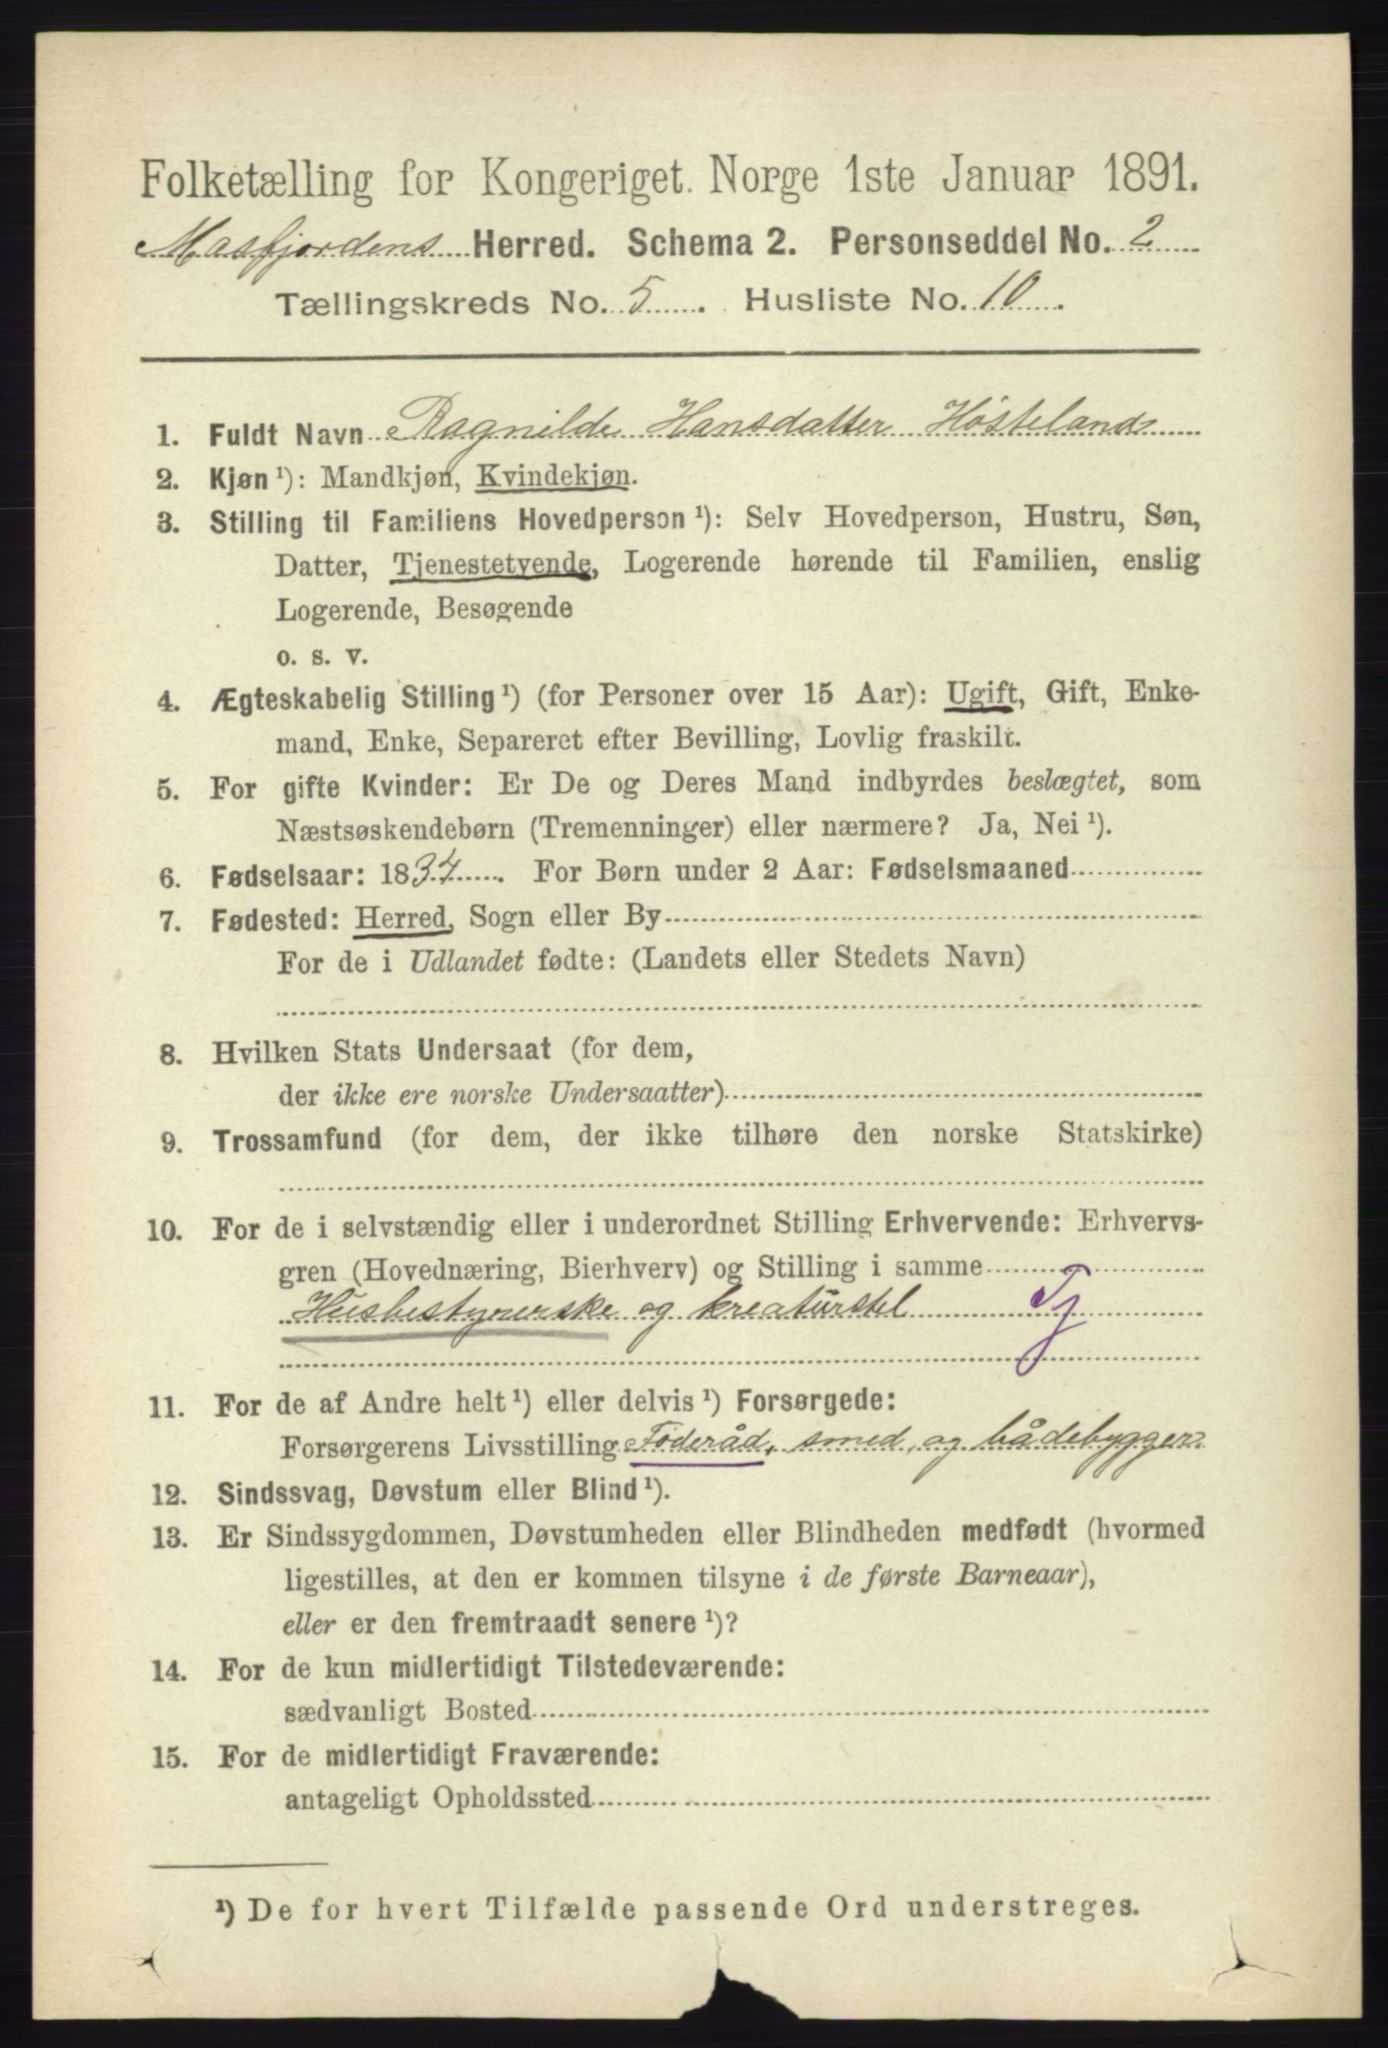 Folketælling for Kongeriget Norge 1ste Januar 1891.
Masfjordens Herred. Schema 2. Personseddel No. 2
Tællingskreds No. 5. Husliste No. 10.
1. Fuldt Navn Ragnilde Hansdatter Høsteland
2. Kjøn ¹): Mandkjøn, Kvindekjøn.
3. Stilling til Familiens Hovedperson ¹): Selv Hovedperson, Hustru, Søn,
Datter, Tjenestetyende, Logerende hørende til Familien, enslig
Logerende, Besøgende
o. s. v.
4. Ægteskabelig Stilling ¹) (for Personer over 15 Aar): Ugift, Gift, Enke-
mand, Enke, Separeret efter Bevilling, Lovlig fraskilt.
5. For gifte Kvinder: Er De og Deres Mand indbyrdes beslægtet, som
Næstsøskendebørn (Tremenninger) eller nærmere? Ja, Nei ¹).
6. Fødselsaar: 1834. For Børn under 2 Aar: Fødselsmaaned
7. Fødested: Herred, Sogn eller By
For de i Udlandet fødte: (Landets eller Stedets Navn)
8. Hvilken Stats Undersaat (for dem,
der ikke ere norske Undersaatter)
9. Trossamfund (for dem, der ikke tilhøre den norske Statskirke)
10. For de i selvstændig eller i underordnet Stilling Erhvervende: Erhvervs-
gren (Hovednæring, Bierhverv) og Stilling i samme
Husbestyrerske og kreaturstel Tj
11. For de af Andre helt ¹) eller delvis ¹) Forsørgede:
Forsørgerens Livsstilling Föderåd, smed, og bådebygger.
12. Sindssvag, Døvstum eller Blind ¹).
13. Er Sindssygdommen, Døvstumheden eller Blindheden medfødt (hvormed
ligestilles, at den er kommen tilsyne i de første Barneaar),
eller er den fremtraadt senere ¹)?
14. For de kun midlertidigt Tilstedeværende:
sædvanligt Bosted
15. For de midlertidigt Fraværende:
antageligt Opholdssted
¹) De for hvert Tilfælde passende Ord understreges.